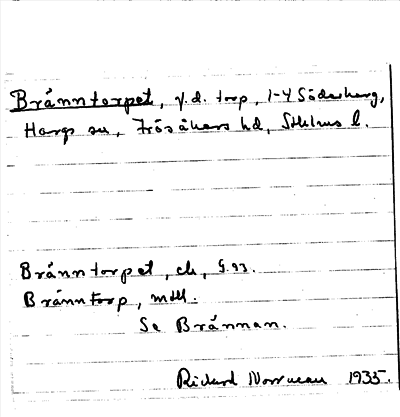 Brånntorpet, f.d. torp, 1-4 Söderberg,
Hargs sn, Frösåkers hd, Sthlms l.
Brånntorpet, ek, 5.93.
Brånntorp, mtl.
Se Brånnan.
Rickard 1935.